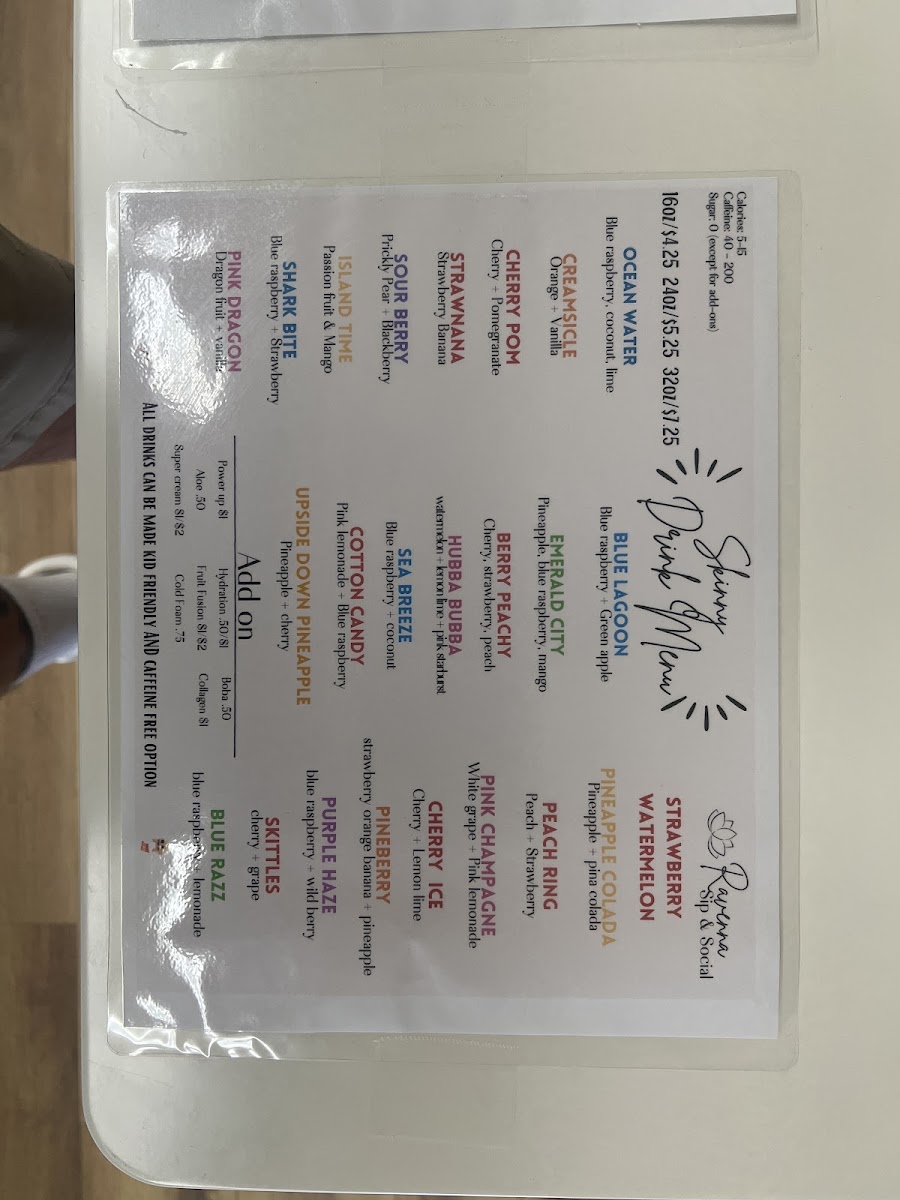 Calories: 5-15
Caffeine: 40 - 200
Sugar: 0 (except for add-ons)
16oz/$4.25 24oz/$5.25 32oz/$7.25
Skinny
Drink Menu
Ravenna
Sip & Social
OCEAN WATER
Blue raspberry, coconut, lime
CREAMSICLE
Orange + Vanilla
CHERRY POM
Cherry + Pomegranate
STRAWNANA
Strawberry Banana
SOUR BERRY
Prickly Pear + Blackberry
ISLAND TIME
Passion fruit & Mango
SHARK BITE
Blue raspberry + Strawberry
PINK DRAGON
Dragon fruit + vanilla
BLUE LAGOON
Blue raspberry + Green apple
EMERALD CITY
Pineapple, blue raspberry, mango
BERRY PEACHY
Cherry, strawberry, peach
HUBBA BUBBA
watermelon + lemon lime + pink starburst
SEA BREEZE
Blue raspberry + coconut
COTTON CANDY
Pink lemonade + Blue raspberry
UPSIDE DOWN PINEAPPLE
Pineapple + cherry
STRAWBERRY
WATERMELON
PINEAPPLE COLADA
Pineapple + pina colada
PEACH RING
Peach + Strawberry
PINK CHAMPAGNE
White grape + Pink lemonade
CHERRY ICE
Cherry + Lemon lime
PINEBERRY
strawberry orange banana + pineapple
PURPLE HAZE
blue raspberry + wild berry
SKITTLES
cherry + grape
BLUE RAZZ
blue raspberry + lemonade
Add on
Power up $1 Hydration .50/$1 Boba .50
Aloe .50 Fruit Fusion $1/$2 Collagen $1
Super cream $1/$2 Cold Foam .75
ALL DRINKS CAN BE MADE KID FRIENDLY AND CAFFEINE FREE OPTION